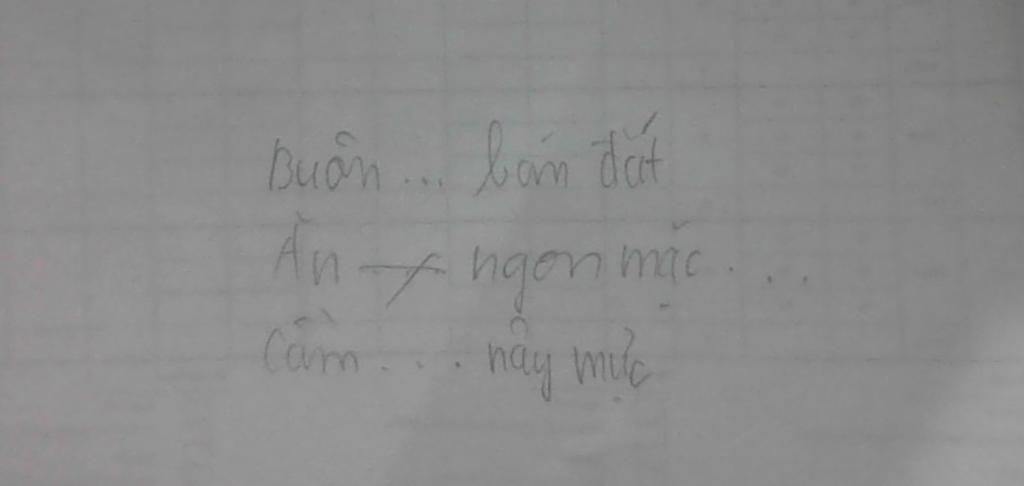 Buôn ... bán đắt
Ăn ngon mặc . . .
Cầm . . . nảy mực